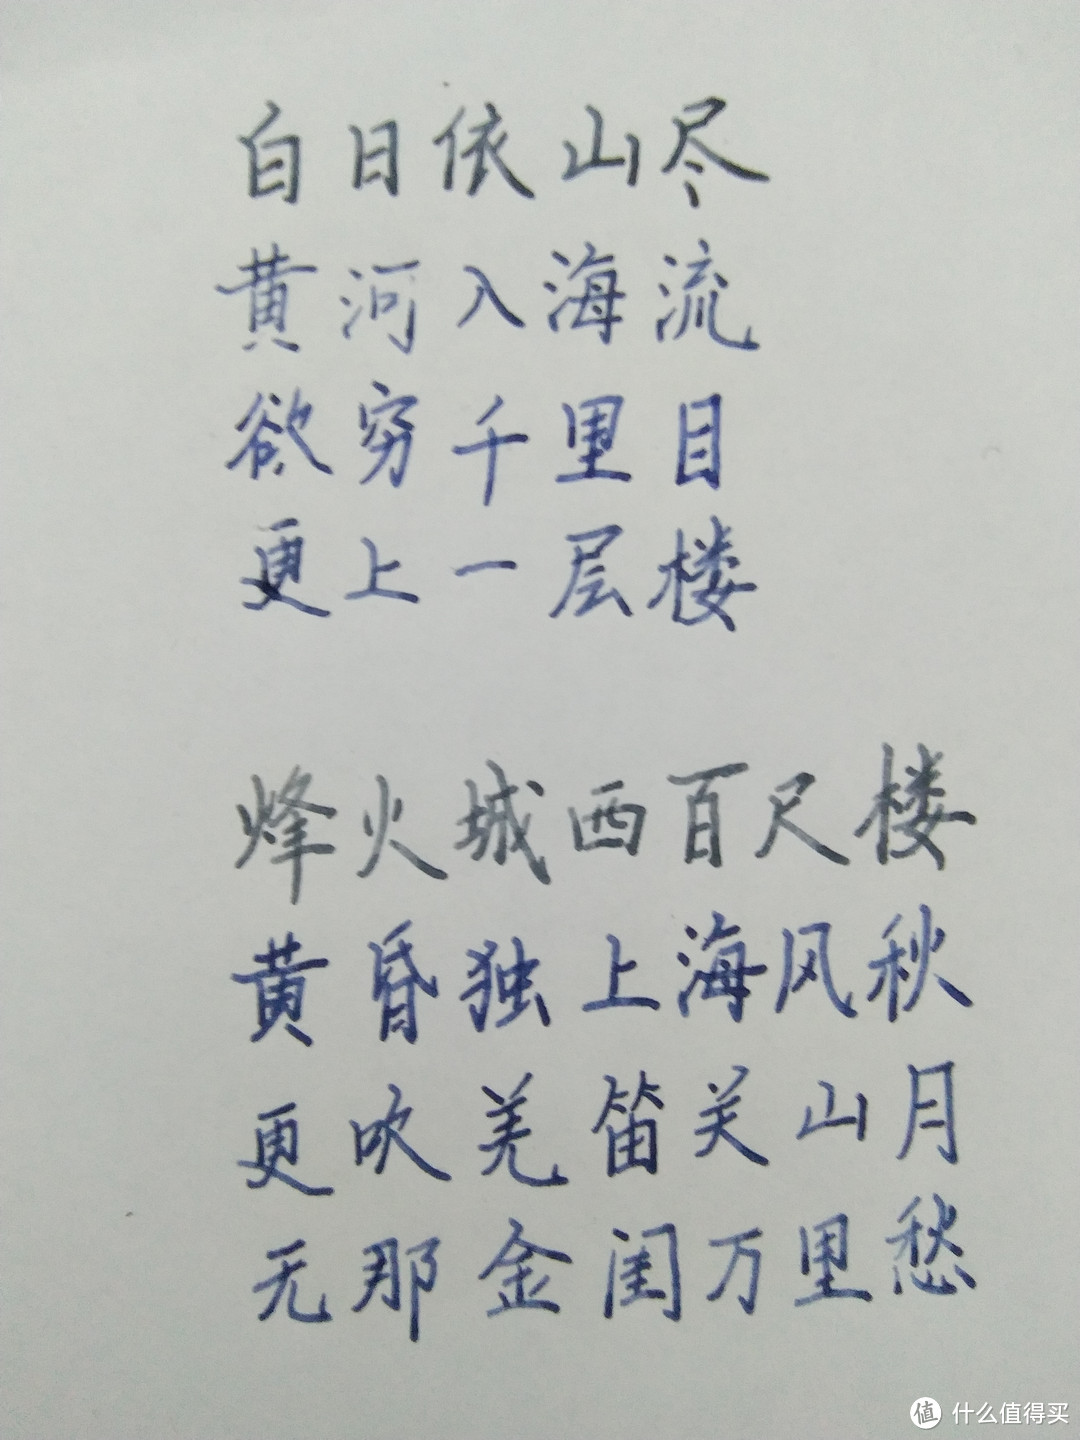 白日依山尽
黄河入海流
欲穷千里目
更上一层楼
烽火城西百尺楼
黄昏独上海风秋
更吹羌笛关山月
无那金闺万里愁
值 什么值得买